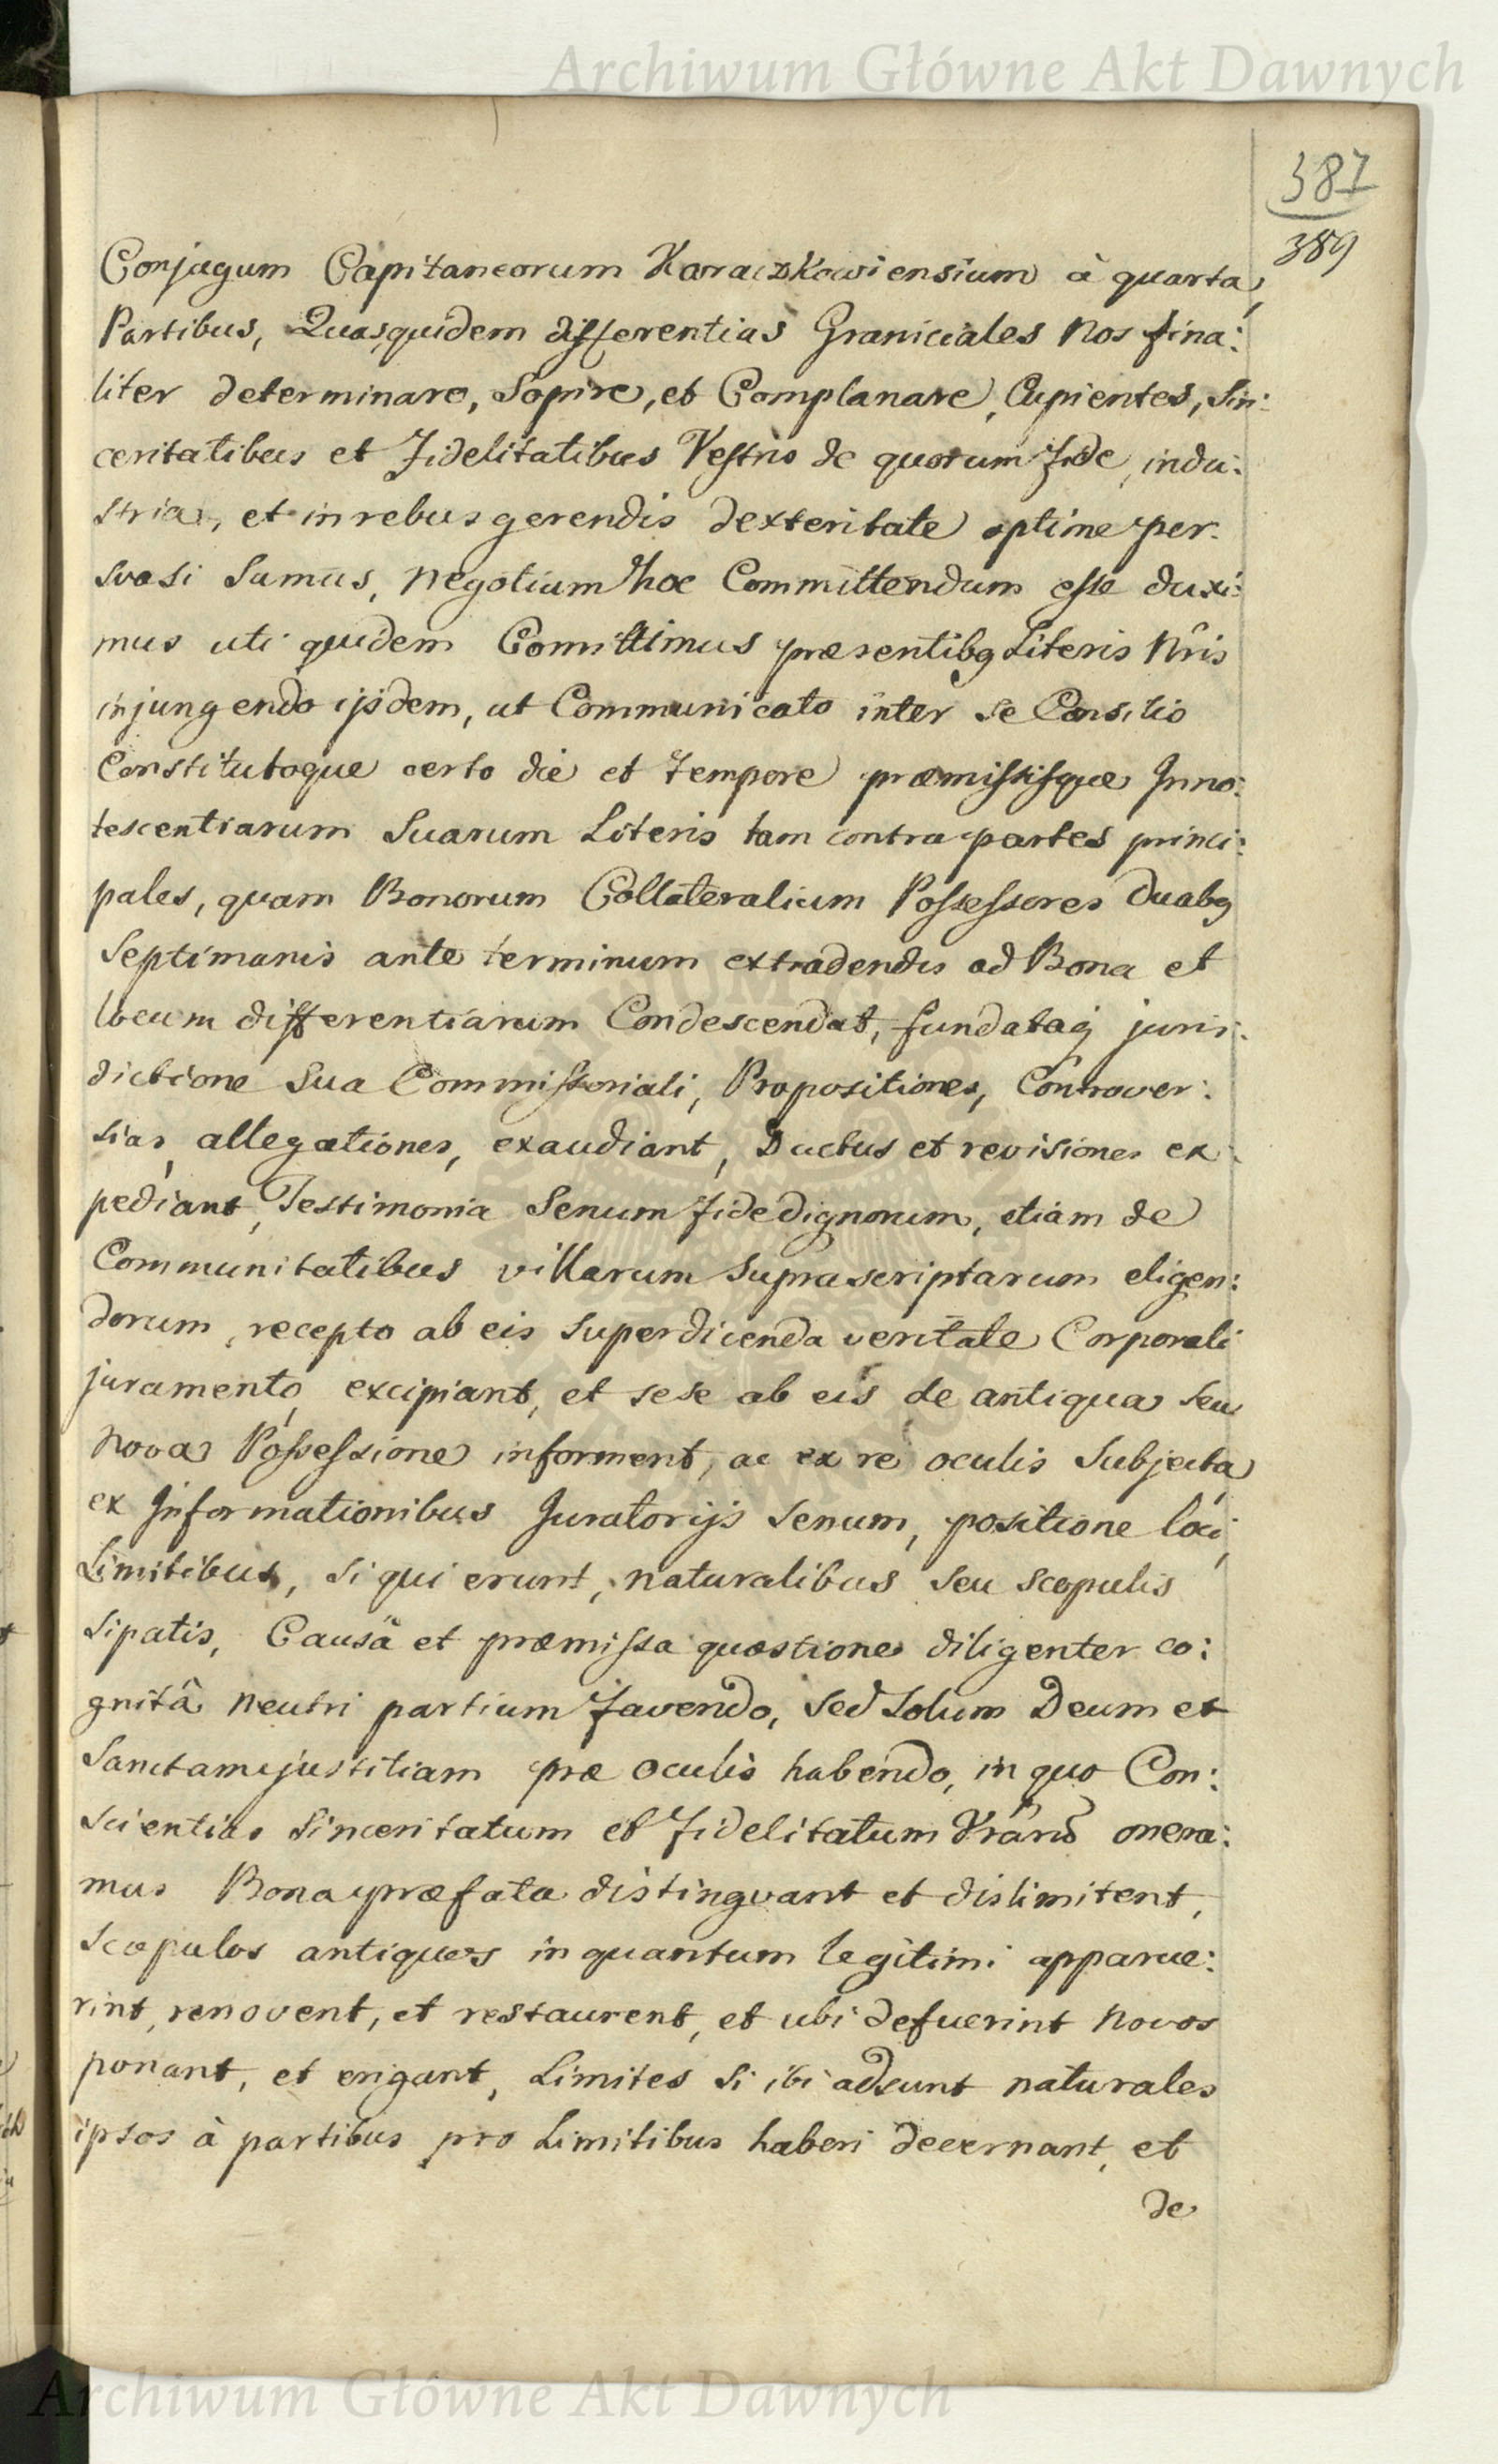 Archiwum Główne Akt Dawnych
387
389
Conjugum Capitaneorum Karaczkowiensium à quarta
Partibus, Quasquidem differentias Graniciales Nos fina:
liter determinare, Sopire, et Complanare, Cupientes, Sin:
ceritatibus et Fidelitatibus Vestris de quorum fide, indu:
stria, et in rebus gerendis dexteritate optime per:
svasi Sumus, Negotium hoc Committendum esse duxi:
mus uti quidem Comittimus præsentibq Literis Nris
injungendo ijsdem, ut Communicato inter se Consilio
Constitutoque certo die et tempore præmissisque Inno:
tescentiarum Suarum Literis tam contra partes princi:
pales, quam Bonorum Collateralium Possessores duabq
Septimanis ante terminum extradendis ad Bona et
locum differentiarum Condescendat, fundataq juris:
dictione Sua Commissoriali, Propositiones, Controver:
sias, allegationes, exaudiant, Ductus et revisiones ex:
pediant, Testimonia Senum fide dignorum, etiam de
Communitatibus villarum suprascriptarum eligen:
dorum, recepto ab eis super dicenda veritate Corporali
juramento, excipiant, et sese ab eis de antiqua seu
Nova Possessione informent, ac ex re oculis Subjecta,
ex Informationibus Juratorijs Senum, positione loci,
Limitibus, si qui erunt, naturalibus seu scopulis
sipatis, Causâ et præmissa quæstione diligenter co:
gnitâ neutri partium favendo, sed solum Deum et
Sanctam justitiam præ oculis habendo, in quo Con:
scientias Sinceritatum et Fidelitatum Vrarũ onera:
mus Bona præfata distingvant et dislimitent,
Scopulos antiquos in quantum legitimi apparue:
rint, renovent, et restaurent, et ubi defuerint Novos
ponant, et erigant, Limites si ibi adsunt naturales
ipsos à partibus pro Limitibus haberi decernant, et
de
Archiwum Główne Akt Dawnych